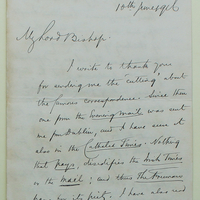 10th June 1916
My Lord Bishop
I write to thank you
for sending me the cutting about
this famous correspondence. Since then
one from the Evening Mail was sent
me from Dublin, and I have seen it
also in the Catholic Times. Nothing
that pays, dissatisfies the Irish Times
or the Mail; and
for its I have also read